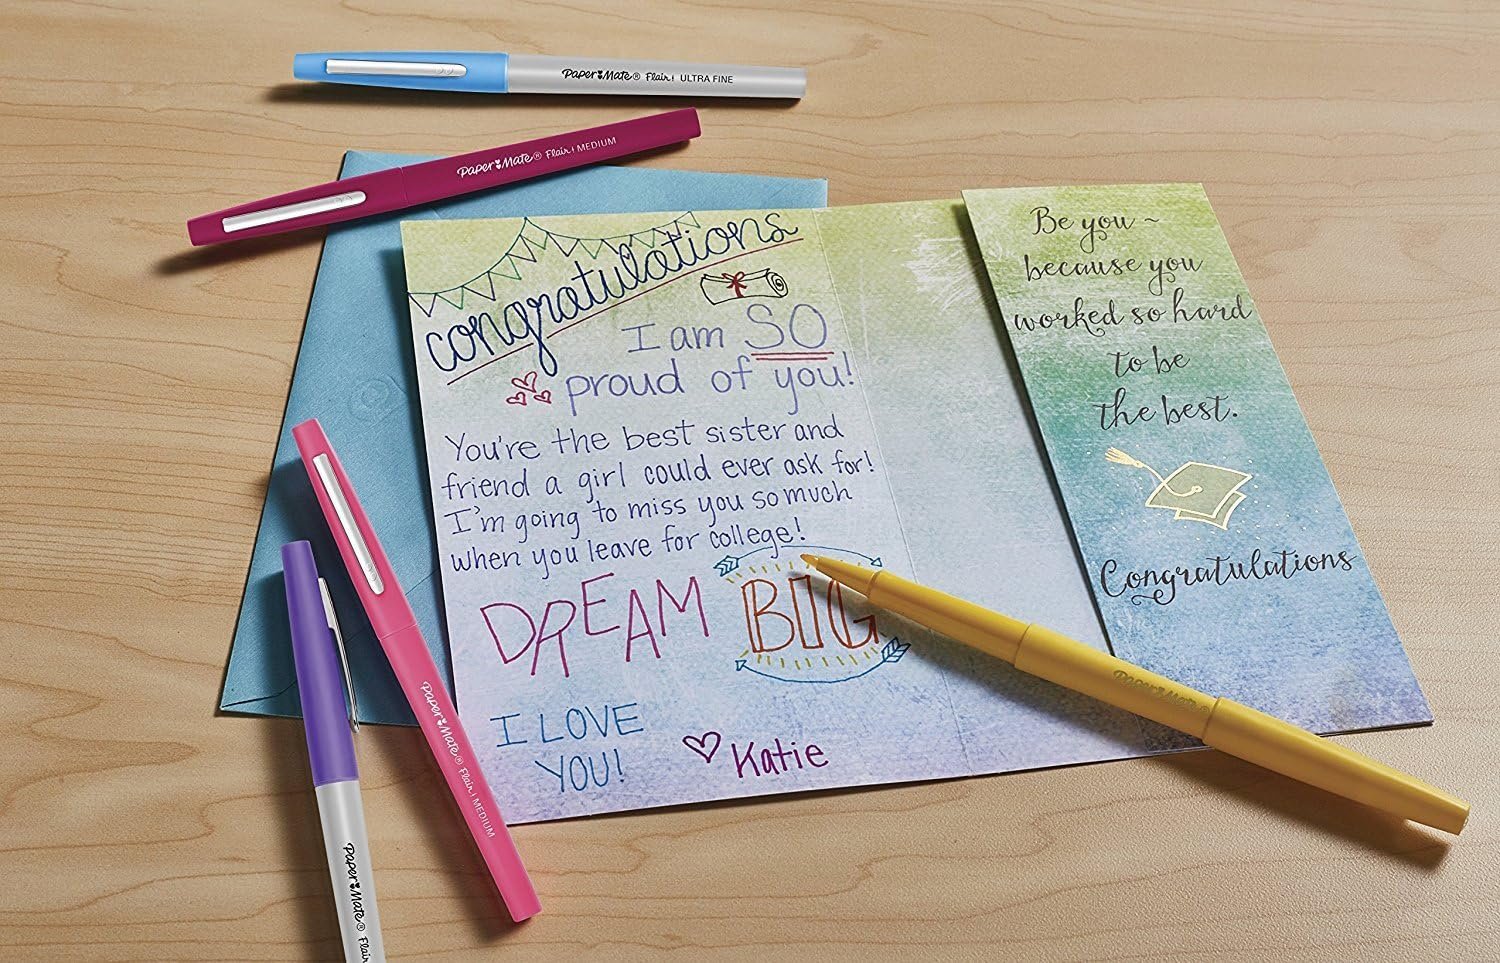 Paper Mate® Flair! ULTRA FINE
Paper Mate® Flair! MEDIUM
congratulations
I am SO
proud of you!
You're the best sister and
friend a girl could ever ask for!
I'm going to miss you so much
when you leave for college!
DREAM BIG
I LOVE
YOU!
Katie
Be you ~
because you
worked so hard
to be
the best.
Congratulations
Paper Mate® Flair! MEDIUM
Paper Mate® Flair
Paper Mate®